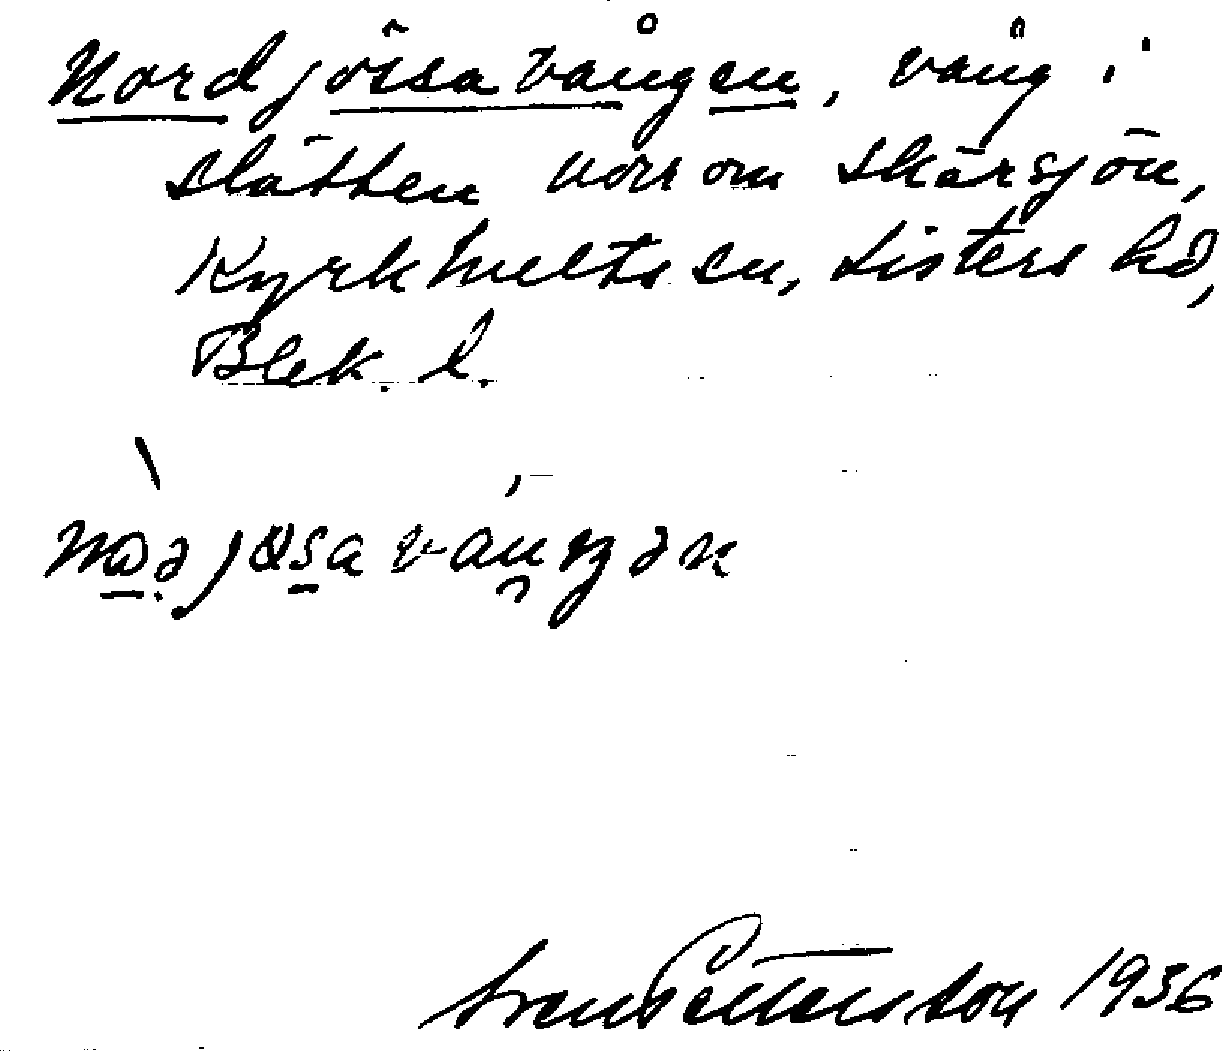 Nordjössavången, vång i
slätten norr om Skärsjön,
Kyrkhults sn, Listers hd,
Blek. l.
Sven Pettersson 1936